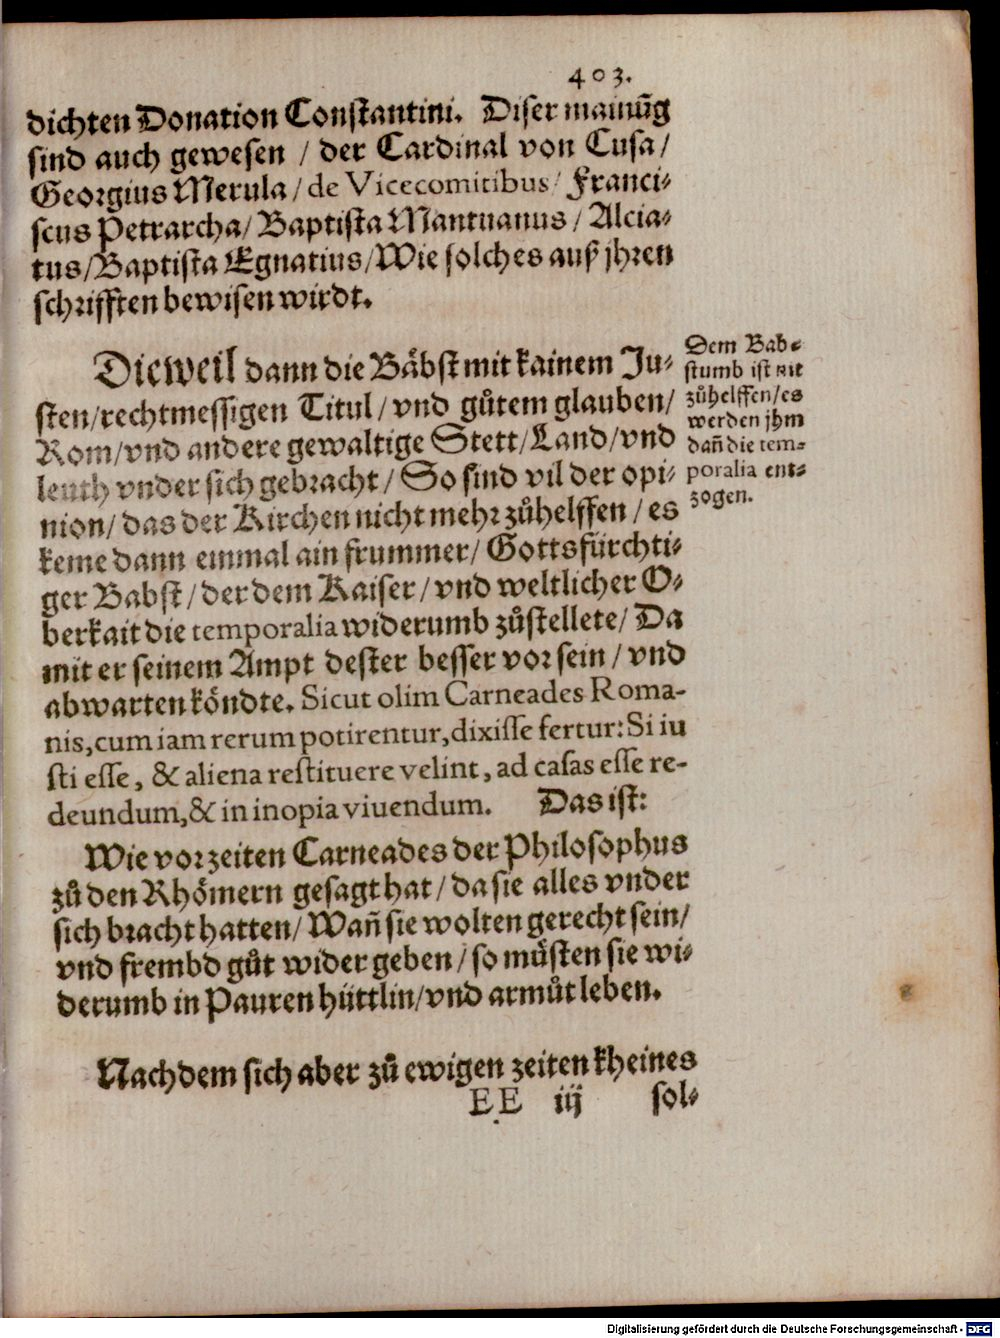 403.
dichten Donation Constantini. Diser mainũg
sind auch gewesen / der Cardinal von Cusa/
Georgius Merula/ de Vicecomitibus/ Franci-
scus Petrarcha/ Baptista Mantuanus / Alcia-
tus/Baptista Egnatius/Wie solches auß jhren
schrifften bewisen wirdt.
Dieweil dann die Bäbst mit kainem Ju-
sten/rechtmessigen Titul/ vnd gůtem glauben/
Rom/vnd andere gewaltige Stett/Land/vnd
leuth vnder sich gebracht/ So sind vil der opi-
nion/ das der Kirchen nicht mehr zůhelffen / es
keme dann einmal ain frummer/ Gottsfürchti-
ger Babst/ der dem Kaiser/ vnd weltlicher O-
berkait die temporalia widerumb zůstellete/ Da
mit er seinem Ampt dester besser vor sein / vnd
abwarten köndte. Sicut olim Carneades Roma-
nis, cum iam rerum potirentur, dixisse fertur: Si iu
sti esse, & aliena restituere velint, ad casas esse re-
deundum, & in inopia viuendum. Das ist:
Dem Bab-
stumb ist nit
zůhelffen/es
werden jhm
dañ die tem-
poralia ent-
zogen.
Wie vorzeiten Carneades der Philosophus
zů den Rhömern gesagt hat/ da sie alles vnder
sich bracht hatten/ Wañ sie wolten gerecht sein/
vnd frembd gůt wider geben/ so müsten sie wi-
derumb in Pauren hüttlin/vnd armůt leben.
Nachdem sich aber zů ewigen zeiten kheines
EE iij sol-
Digitalisierung gefördert durch die Deutsche Forschungsgemeinschaft - DFG